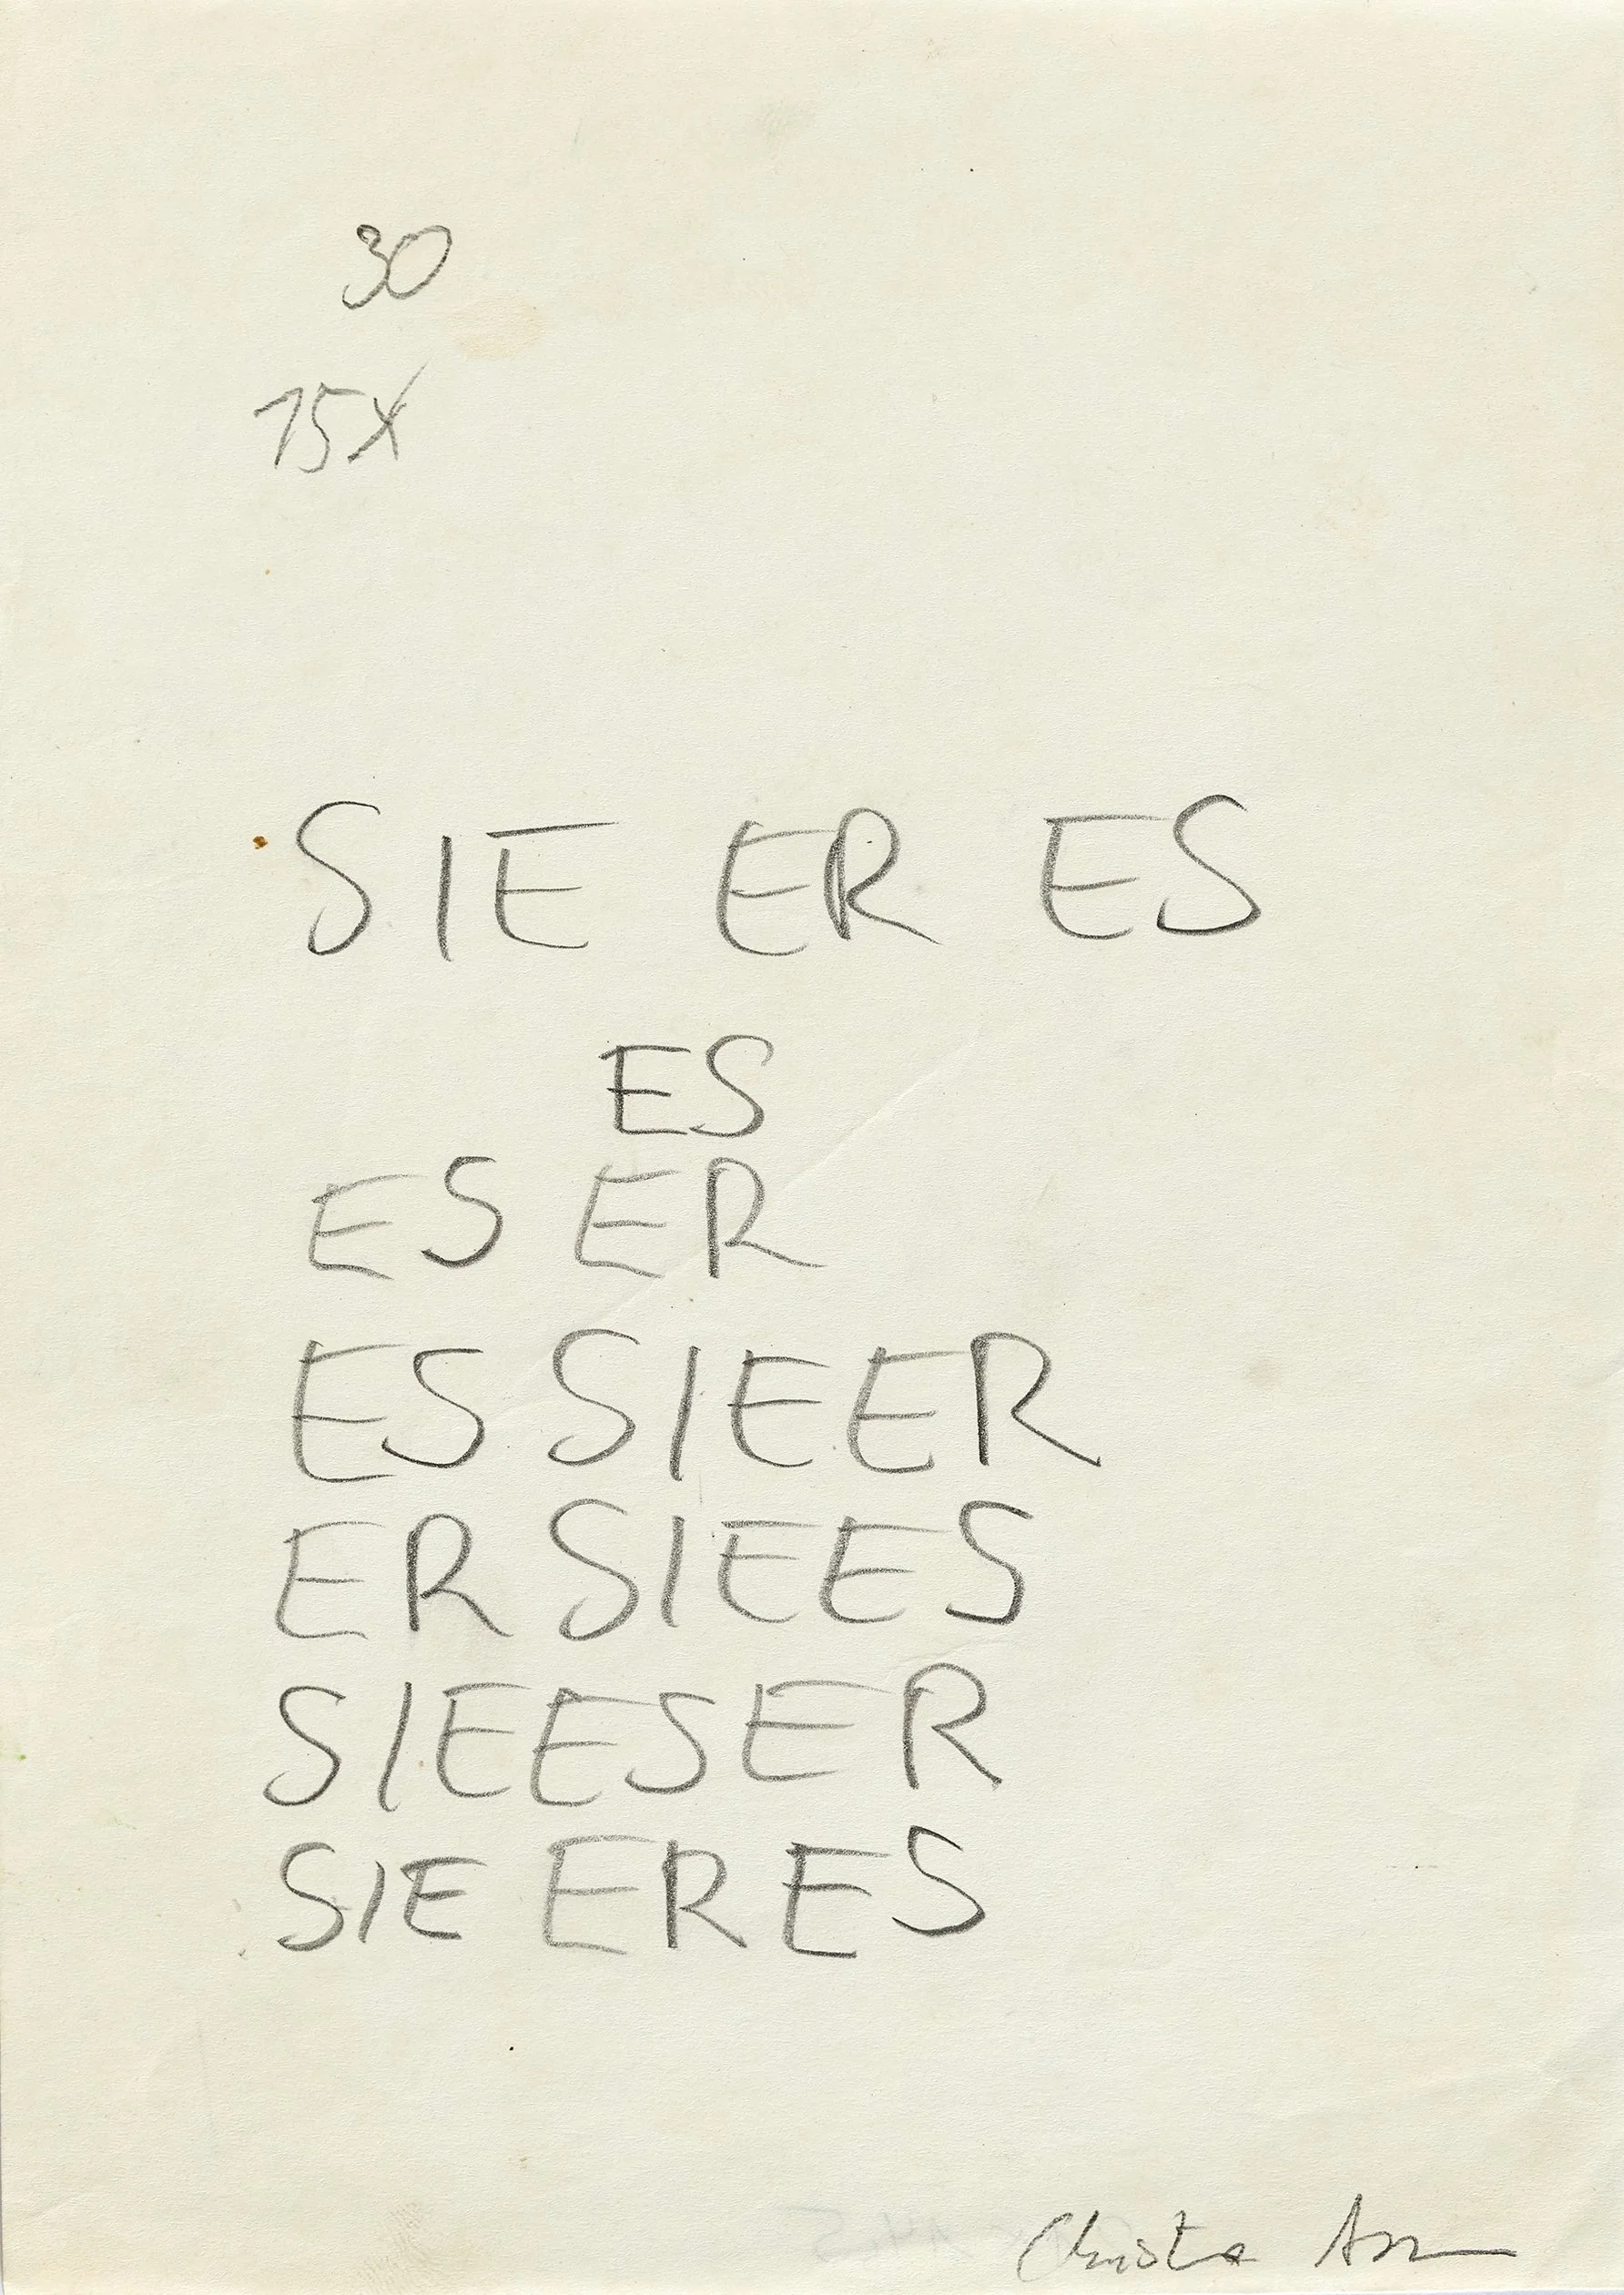 30
15X
SIE ER ES
ES
ES ER
ES SIE ER
ER SIE ES
SIE ES ER
SIE ER ES
Christa